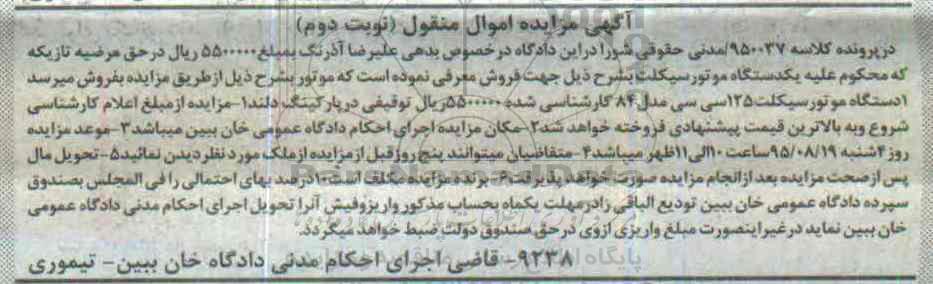 آگهی مزایده اموال منقول (نوبت دوم)
درپرونده کلاسه ۹۵۰۰۳۷/مدنی حقوقی شورا دراین دادگاه درخصوص بدهی علیرضا آذرنگ بمبلغ۵۵۰۰۰۰۰ ریال درحق مرضیه تازیکه
که محکوم علیه یکدستگاه موتورسیکلت بشرح ذیل جهت فروش معرفی نموده است که موتور بشرح ذیل ازطریق مزایده بفروش میرسد
۱دستگاه موتورسیکلت۱۲۵سی سی مدل۸۴ کارشناسی شده ۵۵۰۰۰۰۰ریال توقیفی درپارکینگ دلند۱-مزایده ازمبلغ اعلام کارشناسی
شروع وبه بالاترین قیمت پیشنهادی فروخته خواهد شد۲-مکان مزایده اجرای احکام دادگاه عمومی خان ببین میباشد۳-موعد مزایده
روز ۴شنبه ۹۵/۰۸/۱۹ساعت ۱۰الی۱۱ظهر میباشد۴-متقاضیان میتوانند پنج روزقبل ازمزایده ازملک مورد نظر دیدن نمائید۵-تحویل مال
پس ازصحت مزایده بعد ازانجام مزایده صورت خواهد پذیرفت۶-برنده مزایده مکلف است۱۰درصد بهای احتمالی را فی المجلس بصندوق
سپرده دادگاه عمومی خان ببین تودیع الباقی رادرمهلت یکماه بحساب مذکور واریزوفیش آنرا تحویل اجرای احکام مدنی دادگاه عمومی
خان ببین نماید درغیراینصورت مبلغ واریزی ازوی درحق صندوق دولت ضبط خواهد میگردد.
۹۲۳۸- قاضی اجرای احکام مدنی دادگاه خان ببین- تیموری